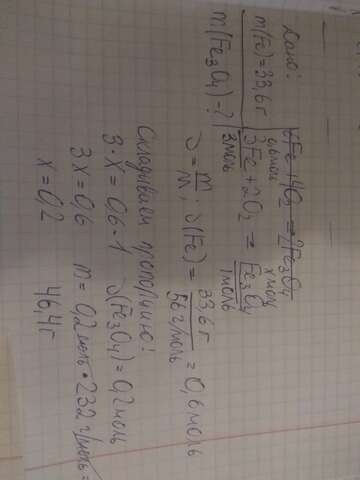 Дано:
m(Fe)=33,6г
m(Fe3O4)-?
6Fe+4O2→2Fe3O4
0,6моль хмоль
3Fe+2O2→Fe3O4
3моль 1моль
ν=m/M; ν(Fe)=33,6г/56г/моль=0,6моль
Складываем пропорцию:
3·x=0,6·1 ν(Fe3O4)=0,2моль
3x=0,6 m=0,2моль·232г/моль=
x=0,2 46,4г